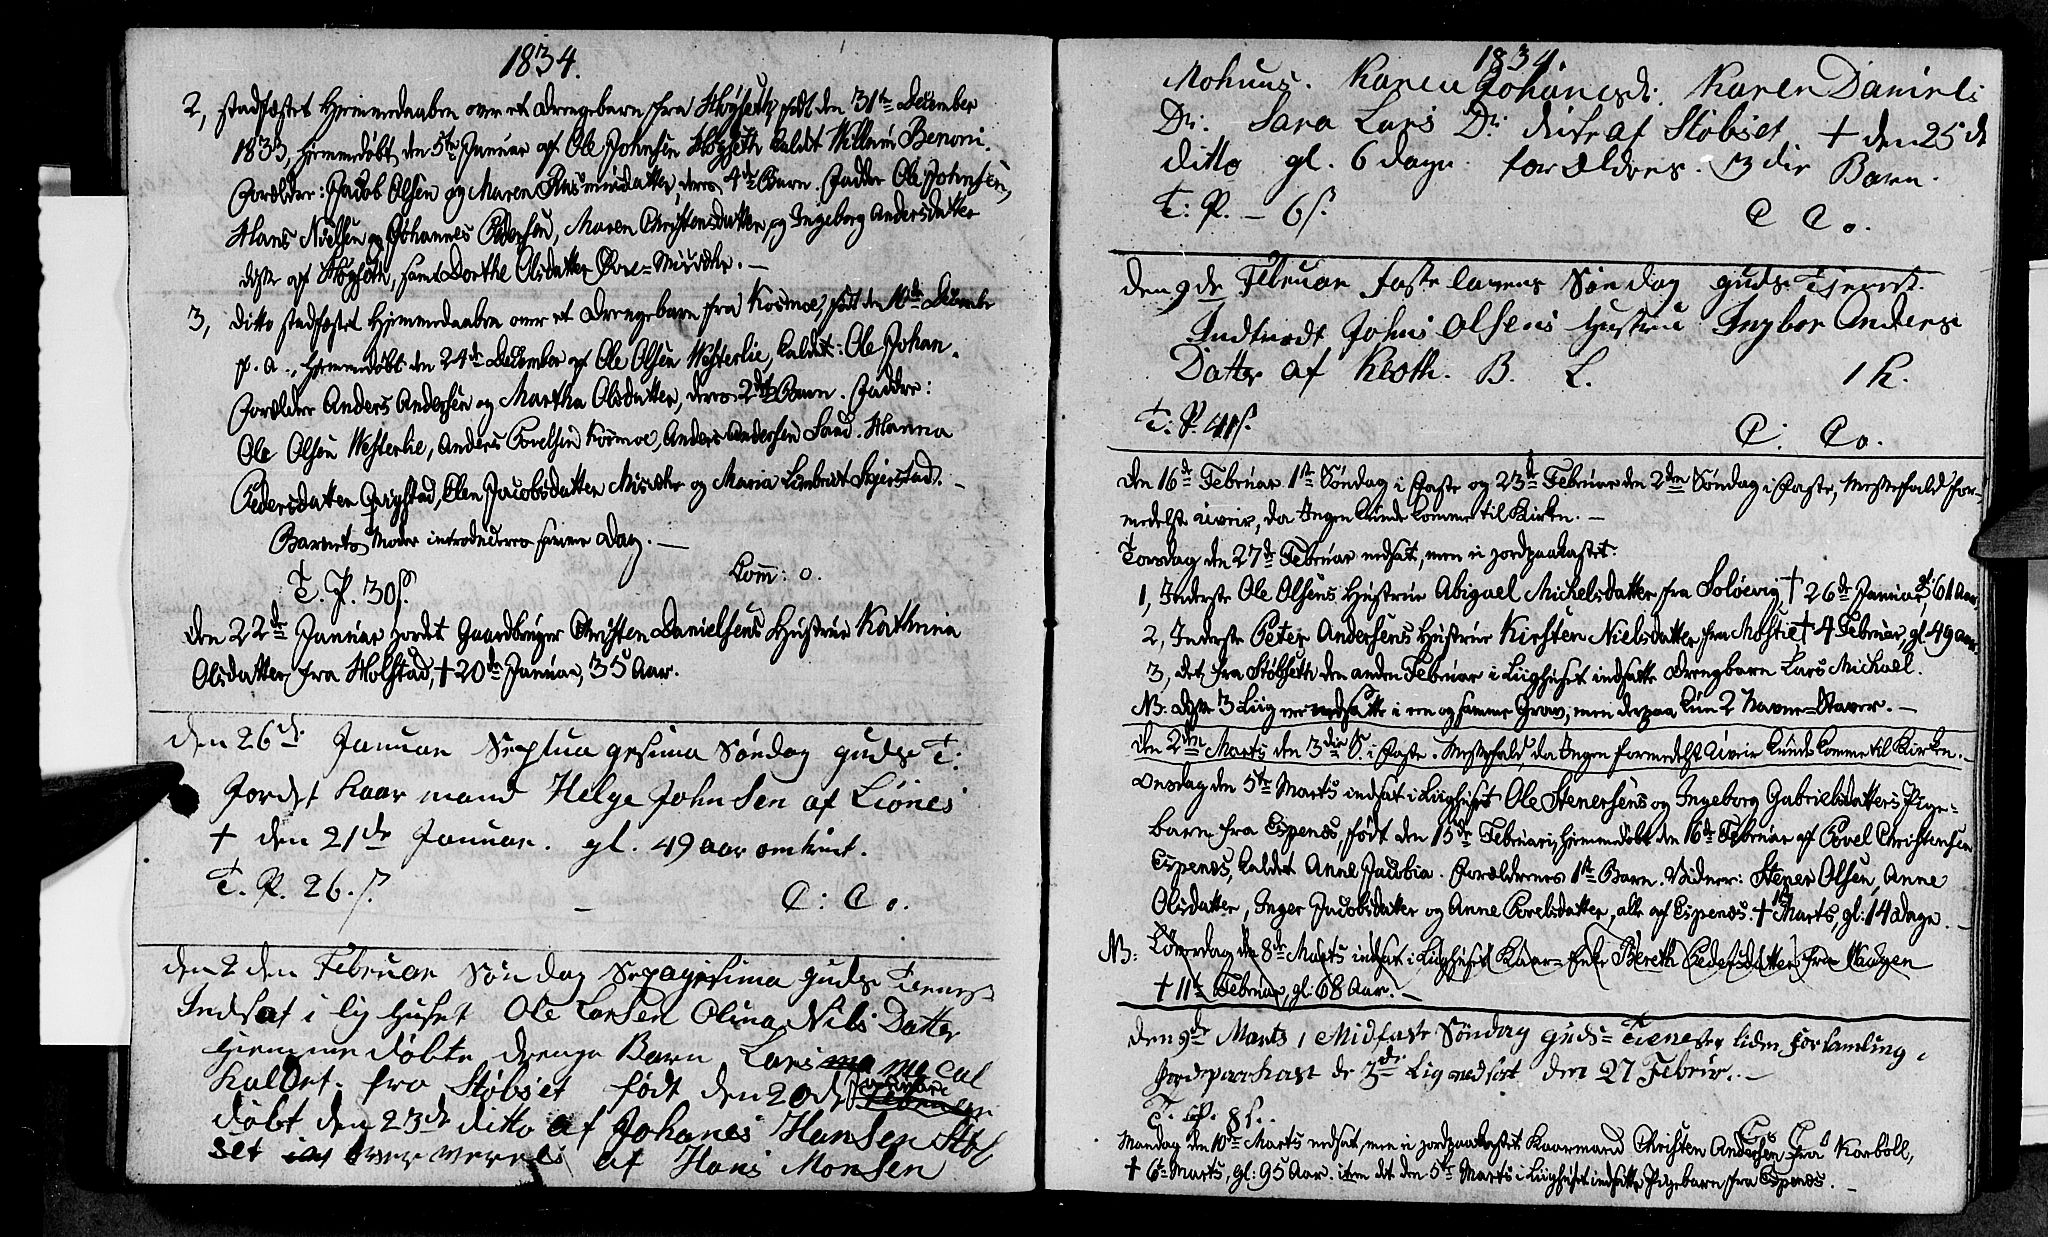 1834.
2, stadfæstet Hiemmedaaben over et Drengebarn fra Høyseth, født den 31te December
1833, hiemmedøbt den 5te Januar af Ole Johnsen Høyseth kaldt Willum Benoni.
Forælder: Jacob Olsen og Maren Rasmusdatter, deres 4de Barn. Faddere Ole Johnsen,
Hans Nielsen og Johannes Pedersen, Maren Christensdatter, og Ingeborg Andersdatter
disse af Høyseth, samt Dorthe Olsdatter Øvre=Misvær. —
3, ditto stadfæstet Hiemmedaaben over et Drengebarn fra Kosmoe, født den 16de Decembr
f. a., hiemmedøbt den 24de December af Ole Olsen Westerlie, kaldet: Ole Johan.
Forælder Anders Andersen og Martha Olsdatter, deres 2det Barn. Faddre:
Ole Olsen Westerlie, Anders Povelsen Kosmoe, Anders Andersen Sand. Hanna
Pedersdatter, Elen Jacobsdatter Misvær og Maria Skjerstad. —
Barnets Moder introduceres samme Dag. —
T. P. 30 ß. Comm: 0.
Den 22de Januar jordet Gaardbruger Christen Danielsens Hustrue Kathrina
Olsdatter fra Holstad, † 20de Januar, 35 Aar.
den 26de Januar Septuagesima Søndag guds T:
Jordet Kaarmand Helge Johnsen af Liønes
† den 21de Januar. gl. 49 aar omtrint.
T. P. 26. ß. — C: C o.
den 2den Februar Søndag guds Tieneste
Indsat i lig Huset Ole Larsen Olina Nils Datter
hiemme døbte drenge Barn Lars ma mecal
kaldet. fra Støbset født den 20de Januari Februar
døbt den 23de ditto af Johanes Hansen Støb
set af Hans Monsen
1834.
Mohuus. Karen Johanesdr. Karen Daniels
Dr. Sara Lars Dr. af Støbset † den 25de
ditto gl. 6 dage forældres 3die Barn.
T: P. — 6 ß. C C o.
den 9de Februar faste lavens Søndag guds Tjenest.
Indtrædt Johns Olsens Hustrue Ingbor Anders
Datter af Kloth. B. L. 1 K.
T. P. 41 ß. C: Co.
Den 16de Februar 1ste Søndag i Faste og 23de Februar den 2den Søndag i Faste, Messefald for-
medelst Uveir, da Ingen kunde komme til Kirken. —
Torsdag den 27de Februar nedsat, men ei jordpaakastet:
1, Inderste Ole Olsens Hustrue Abigael Michelsdatter fra Soløevig † 26de Januar, gl: 61 Aar
2, Inderste Peter Andersens Hustrue Kirsten Nielsdatter fra † 4 Februar, gl. 49 aar.
3, det fra Støbseth den anden Februar i Liighuset indsatte Drengbarn Lars Michael.
NB. disse 3 Liig ere nedsatte i een og samme Grav, men derpaa kun 2 Navne=Staver. —
Den 2den Marts den 3die S. i Faste. Messefald, da Ingen formedelst Uveir kunde komme til Kirken. —
Onsdag den 5te Marts indsat i Liighuset Ole Stenersens og Ingeborg Gabrielsdatters Pige-
barn fra Espenes, født den 15de Februari, hiemmedøbt den 16de Februar af Povel Christensen
Espenes, kaldet Anne Jacobia. Forældrenes 1ste Barn. Vidner: Stener Olsen, Anne
Olsdatter, Inger Jacobsdatter og Anne Povelsdatter, alle af Espenes † Marts, gl: 14 Dage. —
NB: Løverdag den 8de Marts indsat i Liighuset Kaar=Enke Bereth Pedersdatter fra Vaagen
† 11te Februar, gl: 68 Aar. —
den 9de Marts, Midfaste Søndag guds=Tieneste liden forsamling
Jordpaakast de 3de Lig nedsat den 27 Februr. —
T. P. 8 ß. C: C o
Mandag den 10de Marts nedsat, men ei jordpaakastet Kaarmand Christen Andersen fra Karbøll,
† 6te Marts, gl: 95 Aar. item det den 5te Marts i Liighuset indsatte Pigebarn fra Espenes. —